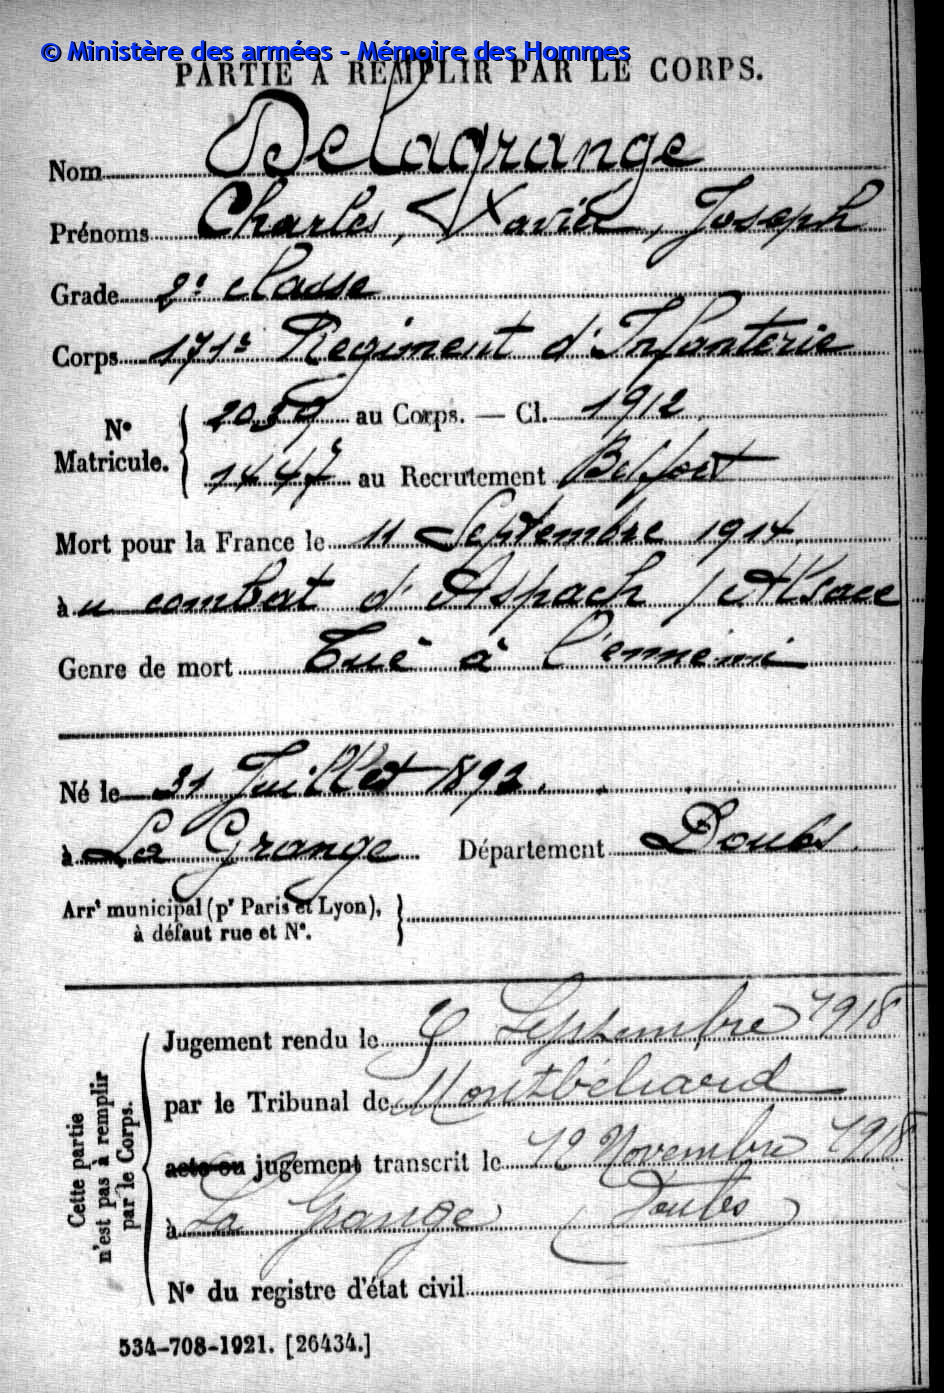 © Ministère des armées - Mémoire des Hommes
PARTIE À REMPLIR PAR LE CORPS.
Nom Delagrange
Prénoms Charles, Xavier, Joseph
Grade 2e classe
Corps 171e Régiment d'Infanterie
N° Matricule. 2059 au Corps. — Cl. 1912
1447 au Recrutement Belfort
Mort pour la France le 11 Septembre 1914
à u combat d'Aspach (Alsace
Genre de mort Tué à l'ennemi
Né le 31 Juillet 1892.
à La Grange Département Doubs
Arrt municipal (pr Paris et Lyon),
à défaut rue et N°.
Cette partie
n'est pas à remplir
par le Corps.
Jugement rendu le 5 Septembre 1918
par le Tribunal de Montbéliard
acte ou jugement transcrit le 12 Novembre 1918
à La Grange (Doubs)
N° du registre d'état civil
534-708-1921. [26434.]